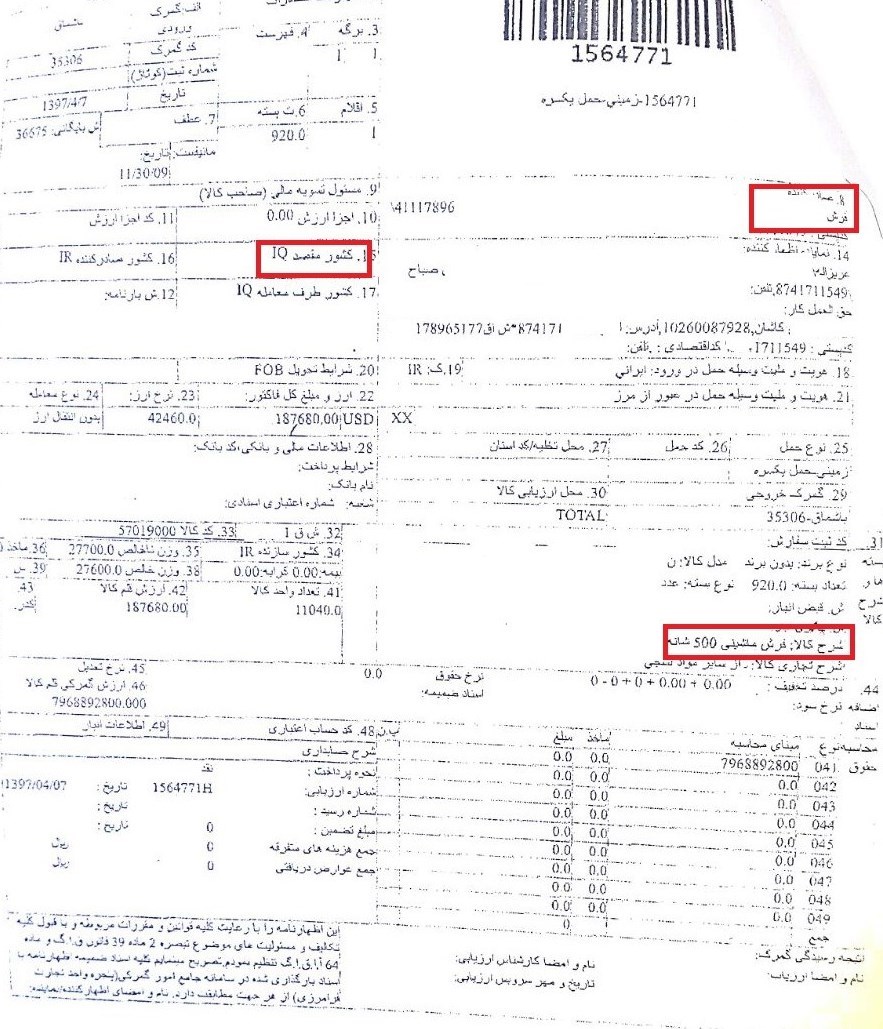 الف:گمرک
ورودی
3. برگه
4. فهرست
کد گمرک
35306
1
1
شماره ثبت(کوتاژ)
تاریخ
1397/4/7
1564771
1564771-زمینی-حمل یکسره
5. اقلام
6.ت بسته
7. عطف
ش بایگانی: 36675
1
920.0
مانیفست: تاریخ:
11/30/09
8.
فرش
41117896\
9. مسئول تسویه مالی (صاحب کالا)
10. اجزا ارزش 0.00
11. کد اجزا ارزش
14. نماینده اظهار کننده:
عزیزاله
، صباح
8741711549,تلفن:
حق العمل کار:
15. کشور مقصد IQ
16. کشور صادرکننده IR
17. کشور طرف معامله IQ
12.ش بارنامه:
کاشان,10260087928,آدرس:
874171*ش ق178965177
کدپستی : 1711549
کداقتصادی : , تلفن:
18. هویت و ملیت وسیله حمل در ورود: ایرانی
19.ک: IR
20. شرایط تحویل FOB
21. هویت و ملیت وسیله حمل در عبور از مرز
XX
22. ارز و مبلغ کل فاکتور:
23. نرخ ارز:
24. نوع معامله
187680.00 USD
42460.0
بدون انتقال ارز
25. نوع حمل
26. کد حمل
27. محل تخلیه/کد استان
28. اطلاعات مالی و بانکی/کد بانک:
زمینی-حمل یکسره
شرایط پرداخت:
نام بانک:
29. گمرک خروجی
30. محل ارزیابی کالا
شعبه: شماره اعتباری اسنادی:
باشماق-35306
TOTAL
31. کد ثبت سفارش:
بسته ها و شرح کالا
نوع برند: بدون برند مدل کالا: ن
تعداد بسته: 920.0 نوع بسته: عدد
ش. قبض انبار:
شرح کالا: فرش ماشینی 500 شانه
شرح تجاری کالا: . از سایر مواد نسجی
32. ش ق 1
33. کد کالا 57019000
34. کشور سازنده IR
35. وزن ناخالص 27700.0
36. ماخذ
بیمه:0.00 کرایه:0.00
38. وزن خالص 27600.0
39. س
41. تعداد واحد کالا
42. ارزش قلم کالا
43.
11040.0
187680.00
کدر.
44. درصد تخفیف : 0.00 + 0.00 + 0 + 0 - 0
اضافه نرخ سود:
اسناد
نرخ حقوق
0.0
اسناد ضمیمه:
45. نرخ تعدیل
46. ارزش گمرکی قلم کالا
7968892800.000
محاسبه نوع
مبنای محاسبه
ماخذ
مبلغ
ب.ن
حقوق 041 7968892800 0.0 0.0
042 0.0 0.0 0.0
043 0.0 0.0 0.0
044 0.0 0.0 0.0
045 0.0 0.0 0.0
046 0.0 0.0 0.0
047 0.0 0.0 0.0
048 0.0 0.0 0.0
049 0.0 0.0 0.0
جمع 0
48. کد حساب اعتباری
49. اطلاعات انبار
شرح حسابداری
نحوه پرداخت: نقد
شماره ارزیابی: 1564771H تاریخ : 1397/04/07
شماره رسید : تاریخ :
مبلغ تضمین : 0 تاریخ :
جمع هزینه های متفرقه 0 ریال
جمع عوارض دریافتی 0 ریال
نتیجه رسیدگی گمرک:
نام و امضا ارزیاب:
نام و امضا کارشناس ارزیابی:
تاریخ و مهر سرویس ارزیابی:
این اظهارنامه را با رعایت کلیه قوانین و مقررات مربوطه و با قبول کلیه
تکالیف و مسئولیت های موضوع تبصره 2 ماده 39 قانون ق.ا.گ و ماده
64 آ.ا.ق.ا.گ تنظیم نمودم.تصریح مینمایم کلیه اسناد ضمیمه اظهارنامه با
اسناد بارگذاری شده در سامانه جامع امور گمرکی(پنجره واحد تجارت
فرامرزی) از هر جهت مطابقت دارد. نام و امضای اظهارکننده/نماینده: